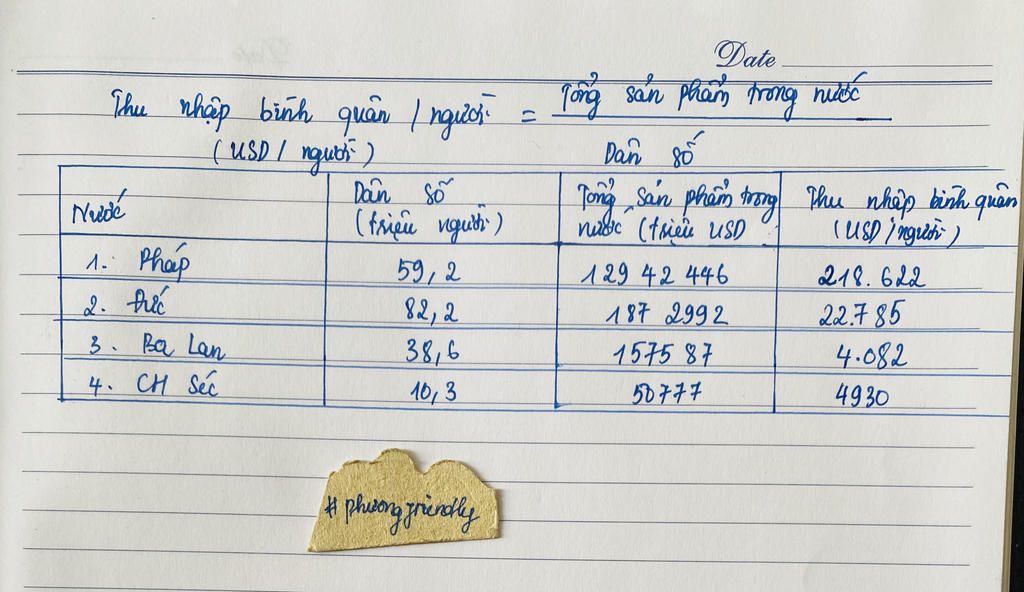 Date
Thu nhập bình quân / người = Tổng sản phẩm trong nước
(USD / người) Dân số
Nước Dân số (triệu người) Tổng sản phẩm trong nước (triệu USD Thu nhập bình quân (USD/người)
1. Pháp 59,2 129 42 446 218.622
2. Đức 82,2 187 2992 22.785
3. Ba Lan 38,6 1575 87 4.082
4. CH Séc 10,3 50777 4930
# phuongfriendly